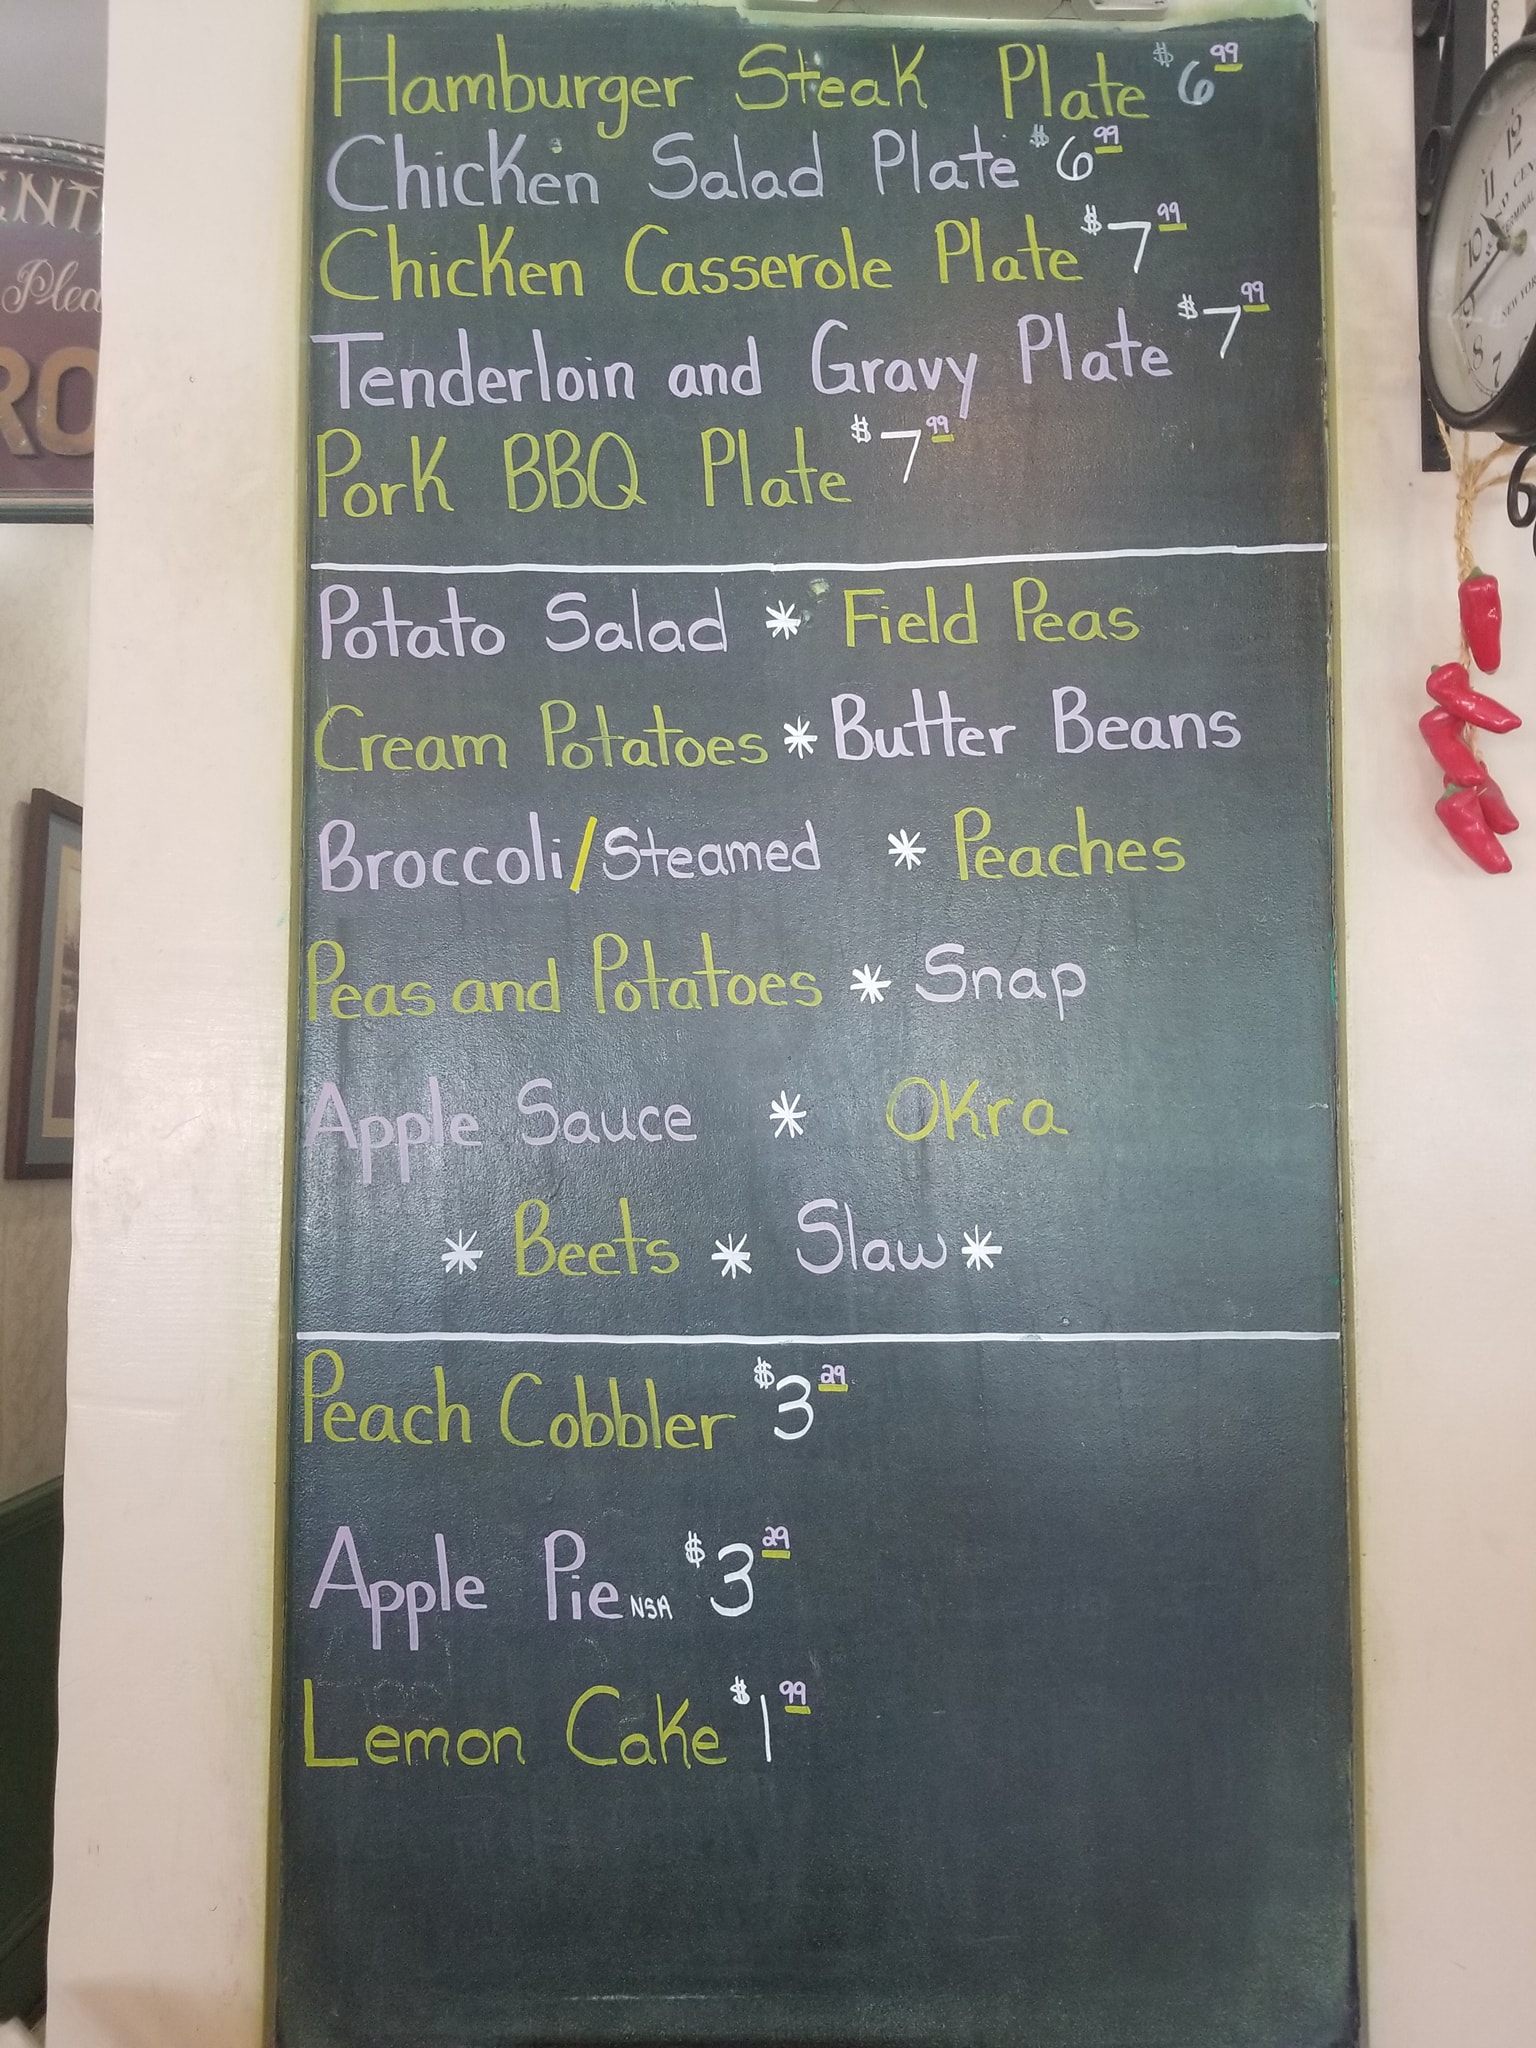 Hamburger Steak Plate $6 99
Chicken Salad Plate $6 99
Chicken Casserole Plate $7 99
Tenderloin and Gravy Plate $7 99
Pork BBQ Plate $7 99
Potato Salad * Field Peas
Cream Potatoes * Butter Beans
Broccoli/Steamed * Peaches
Peas and Potatoes * Snap
Apple Sauce * Okra
* Beets * Slaw *
Peach Cobbler $3 29
Apple Pie NSA $3 29
Lemon Cake $1 99
12
11
10
9
8
7